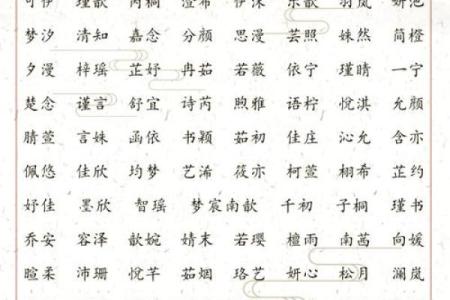 可伊 瑾歆 芮桐 渲希 伊沫 乐歆 羽岚 妍池
梦汐 清知 嘉念 分颜 思漫 芸照 姝然 简橙
夕漫 梓瑶 芷妤 冉茹 若薇 依宁 瑾晴 一宁
楚念 谨言 舒宜 诗芮 煦雅 语柠 悦淇 允颜
腈萱 言姝 函依 书颖 茹初 佳庄 沁允 含亦
佩悠 佳欣 均梦 艺浠 筱亦 柯萱 栩希 芷约
妤佳 墨欣 智瑶 梦宸南歆 千初 子桐 瑾书
乔安 容泽 歆婉 婧末 若璎 檀雨 南茜 向媛
暄柔 沛珊 悦芊 茹烟 珞艺 妍心 松月 澜岚